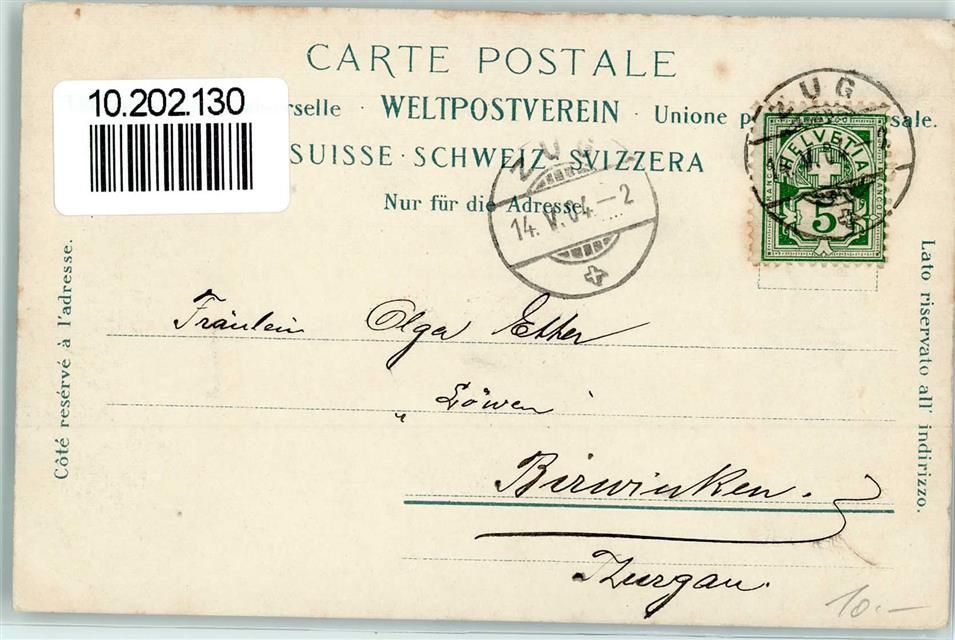 CARTE POSTALE
10.202.130
rselle · WELTPOSTVEREIN · Unione p sale.
SUISSE · SCHWEIZ · SVIZZERA
Nur für die Adresse.
ZUG
14. V. 04. – 2
ZUG
14. V. 0
HELVETIA
FRANCO
5
Côté resérvé à l'adresse.
Lato riservato all' indirizzo.
Fräulein Olga Etter
„ Löwen
Birwinken.
Thurgau.
10.–